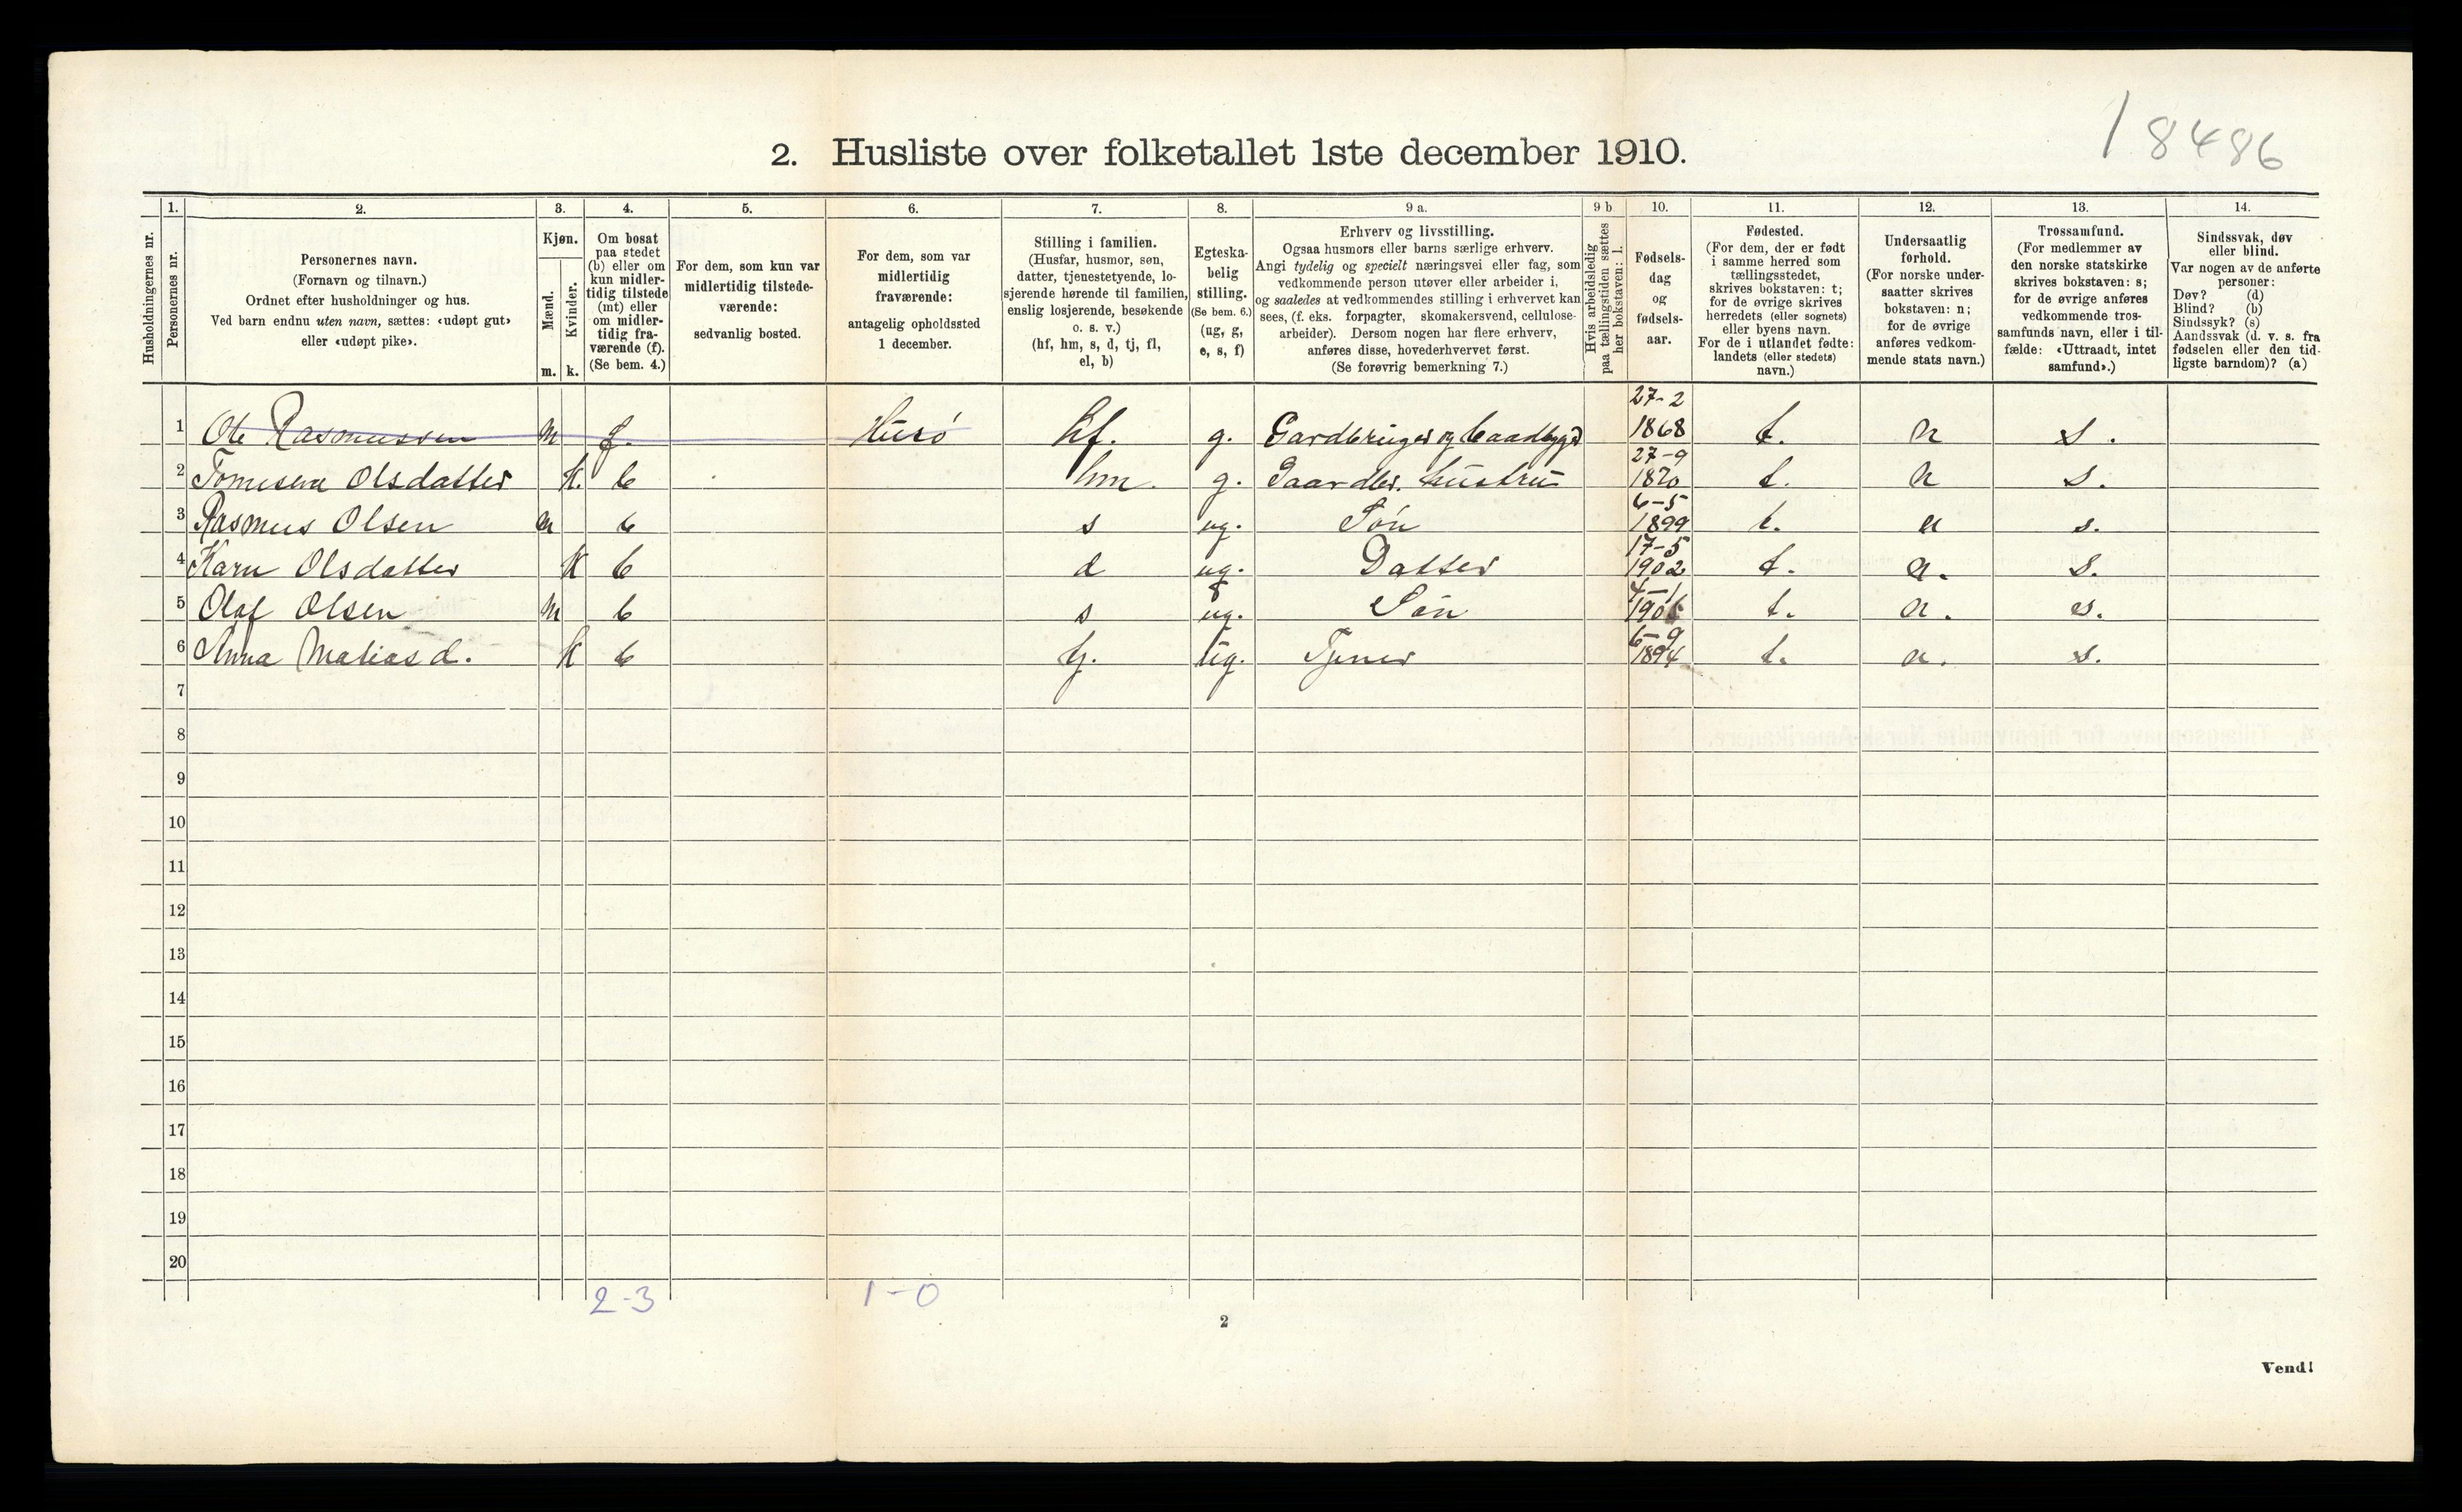 18486
2. Husliste over folketallet 1ste december 1910.
Husholdningernes nr.
1. Personernes nr.
2. Personernes navn. (Fornavn og tilnavn.) Ordnet efter husholdninger og hus. Ved barn endnu uten navn, sættes: «udøpt gut» eller «udøpt pike».
3. Kjøn. Mænd. m. Kvinder. k.
4. Om bosat paa stedet (b) eller om kun midlertidig tilstede (mt) eller om midlertidig fraværende (f). (Se bem. 4.)
5. For dem, som kun var midlertidig tilstedeværende: sedvanlig bosted.
6. For dem, som var midlertidig fraværende: antagelig opholdssted 1 december.
7. Stilling i familien. (Husfar, husmor, søn, datter, tjenestetyende, losjerende hørende til familien, enslig losjerende, besøkende o. s. v.) (hf, hm, s, d, tj, fl, el, b)
8. Egteskabelig stilling. (Se bem. 6.) (ug, g, e, s, f)
9 a. Erhverv og livsstilling. Ogsaa husmors eller barns særlige erhverv. Angi tydelig og specielt næringsvei eller fag, som vedkommende person utøver eller arbeider i, og saaledes at vedkommendes stilling i erhvervet kan sees, (f. eks. forpagter, skomakersvend, cellulosearbeider). Dersom nogen har flere erhverv, anføres disse, hovederhvervet først. (Se forøvrig bemerkning 7.)
9 b Hvis arbeidsledig paa tællingstiden sættes her bokstaven: l.
10. Fødselsdag og fødselsaar.
11. Fødested. (For dem, der er født i samme herred som tællingsstedet, skrives bokstaven: t; for de øvrige skrives herredets (eller sognets) eller byens navn. For de i utlandet fødte: landets (eller stedets) navn.)
12. Undersaatlig forhold. (For norske undersaatter skrives bokstaven: n; for de øvrige anføres vedkommende stats navn.)
13. Trossamfund. (For medlemmer av den norske statskirke skrives bokstaven: s; for de øvrige anføres vedkommende trossamfunds navn, eller i tilfælde: «Uttraadt, intet samfund».)
14. Sindssvak, døv eller blind. Var nogen av de anførte personer: Døv? (d) Blind? (b) Sindssyk? (s) Aandssvak (d. v. s. fra fødselen eller den tidligste barndom)? (a)
1 Ole Rasmussen m f. hf. g. 27-2 1868 t. n s.
2 Tomesene Olsdatter k. b hm. g. Gaardbr. hustru 27-9 1870 t. n s.
3 Rasmus Olsen m b s ug. Søn 6-5 1899 t. n s.
4 Karn Olsdatter k b d ug. Datter 17-5 1902 t. n. s.
5 Olaf Olsen m b s ug. Søn 4-1 t. n. s.
6 Anna Matiasd. k b tj. ug. Tjener 6-9 1894 t. n. s.
7
8
9
10
11
12
13
14
15
16
17
18
19
20
2-3 1-0
2
Vend!